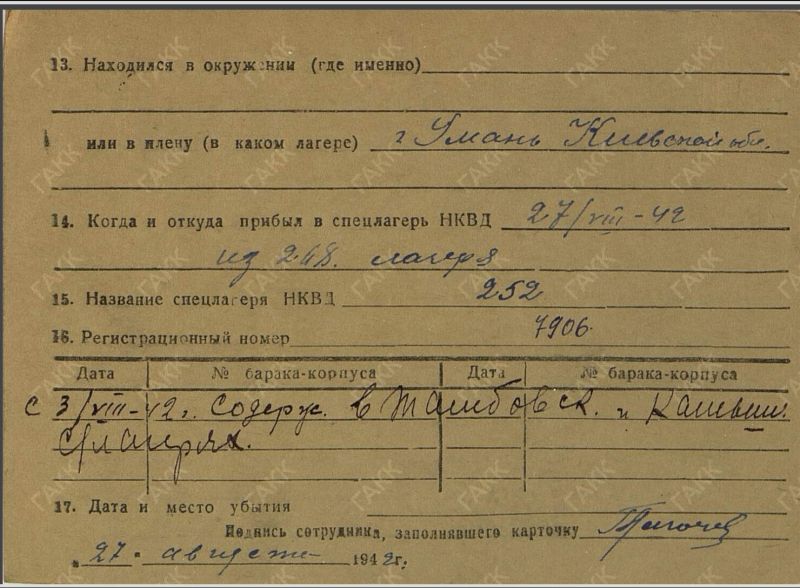 13. Находился в окружении (где именно)
или в плену (в каком лагере) г Умань Киевской обл.
14. Когда и откуда прибыл в спецлагерь НКВД 27/VIII-42
из 248. лагеря
15. Название спецлагеря НКВД 252
16. Регистрационный номер 7906.
Дата № барака-корпуса Дата № барака-корпуса
С 3/VIII-42г. Содерж. в Тамбовск. и
17. Дата и место убытия
Подпись сотрудника, заполнявшего карточку
"27" августа 1942г.
ГАКК